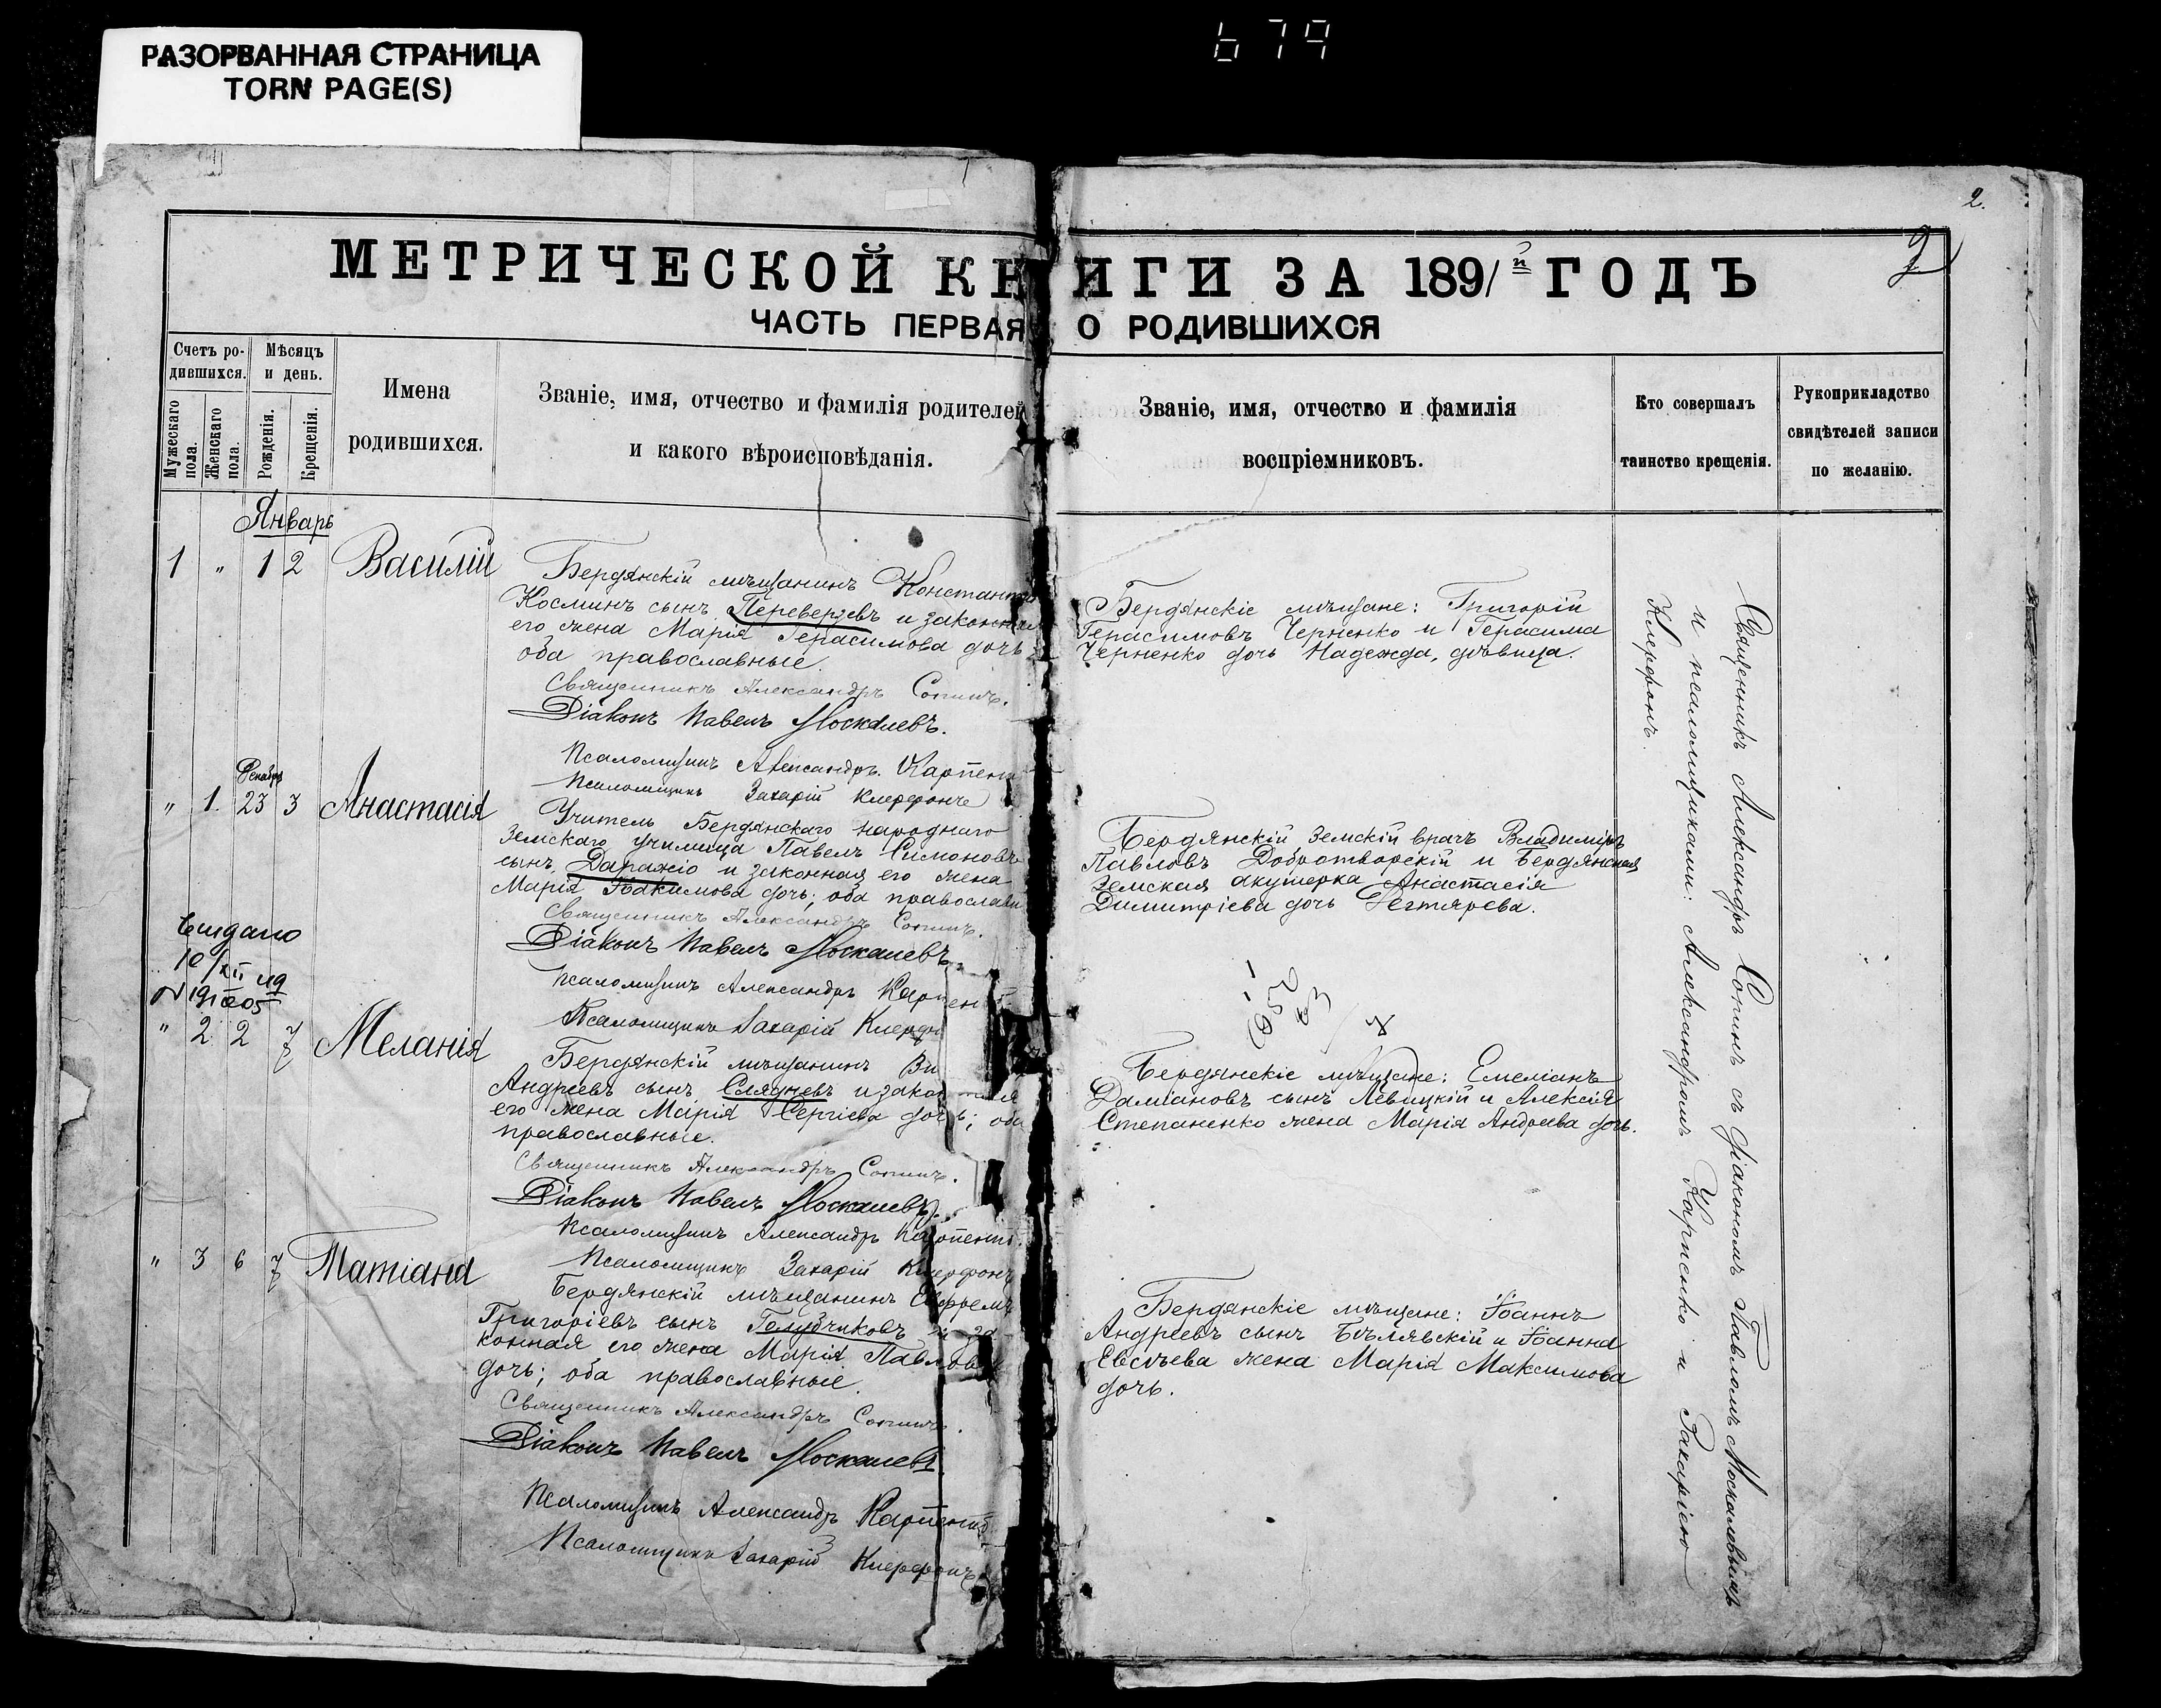 РАЗОРВАННАЯ СТРАНИЦА
TORN PAGE(S)
679
2.
2
МЕТРИЧЕСКОЙ КНИГИ ЗА 1891й ГОДЪ
ЧАСТЬ ПЕРВАЯ О РОДИВШИХСЯ
Счетъ родившихся.
Мужескаго пола.
Женскаго пола.
Мѣсяцъ и день.
Рожденія.
Крещенія.
Имена
родившихся.
Званіе, имя, отчество и фамилія родителей
и какого вѣроисповѣданія.
Званіе, имя, отчество и фамилія
воспріемниковъ.
Кто совершалъ
таинство крещенія.
Рукоприкладство
свидѣтелей записи
по желанію.
Январь
1 " 1 2 Василій
Бердянскій мѣщанинъ Константи
Косминъ сынъ Переверзевъ и законная
его жена Марія Герасимова дочь
оба православные.
Священникъ Александръ Сопинъ.
Діаконъ Павелъ Москалевъ.
Псаломщикъ Александръ Карпен
Псаломщикъ Захарій Клерфонъ
Бердянскіе мѣщане: Григорій
Герасимовъ Черненко и Герасима
Черненко дочь Надежда, дѣвица.
Декабрь
" 1. 23 3 Анастасія
Учитель Бердянскаго народнаго
земскаго училища Павелъ Симоновъ
сынъ Даражіо и законная его жена
Марія Іоакимова дочь; оба православн
Священникъ Александръ Сопинъ.
Діаконъ Павелъ Москалевъ.
Псаломщикъ Александръ Карпен
Псаломщикъ Захарій Клерфон
Бердянскій земскій врачъ Владиміръ
Павловъ Добротворскій и Бердянская
земская акушерка Анастасія
Димитріева дочь Дегтярева.
10/XII 49
" 2 2 7 Меланія
Бердянскій мѣщанинъ Ви
Андреевъ сынъ Слядневъ и законная
его жена Марія Сергіева дочь; оба
православные.
Священникъ Александръ Сопинъ.
Діаконъ Павелъ Москалевъ.
Псаломщикъ Александръ Карпенко.
Псаломщикъ Захарій Клерфонъ
Бердянскіе мѣщане: Емеліанъ
Даміановъ сынъ Левицкій и Алексія
Степаненко жена Марія Андреева дочь.
" 3 6 7 Татіана
Бердянскій мѣщанинъ Евфремъ
Григоріевъ сынъ Голубчиковъ и за-
конная его жена Марія Павлова
дочь; оба православные.
Священникъ Александръ Сопинъ.
Діаконъ Павелъ Москалевъ.
Псаломщикъ Александръ Карпенко
Псаломщикъ Захарій Клерфонъ
Бердянскіе мѣщане: Іоаннъ
Андреевъ сынъ Бѣлявскій и Іоанна
Евсѣева жена Марія Максимова
дочь.
Священникъ Александръ Сопинъ съ діакономъ Павломъ Москалевымъ
и псаломщиками: Александромъ Карпенко и Захаріею
Клерфонъ.